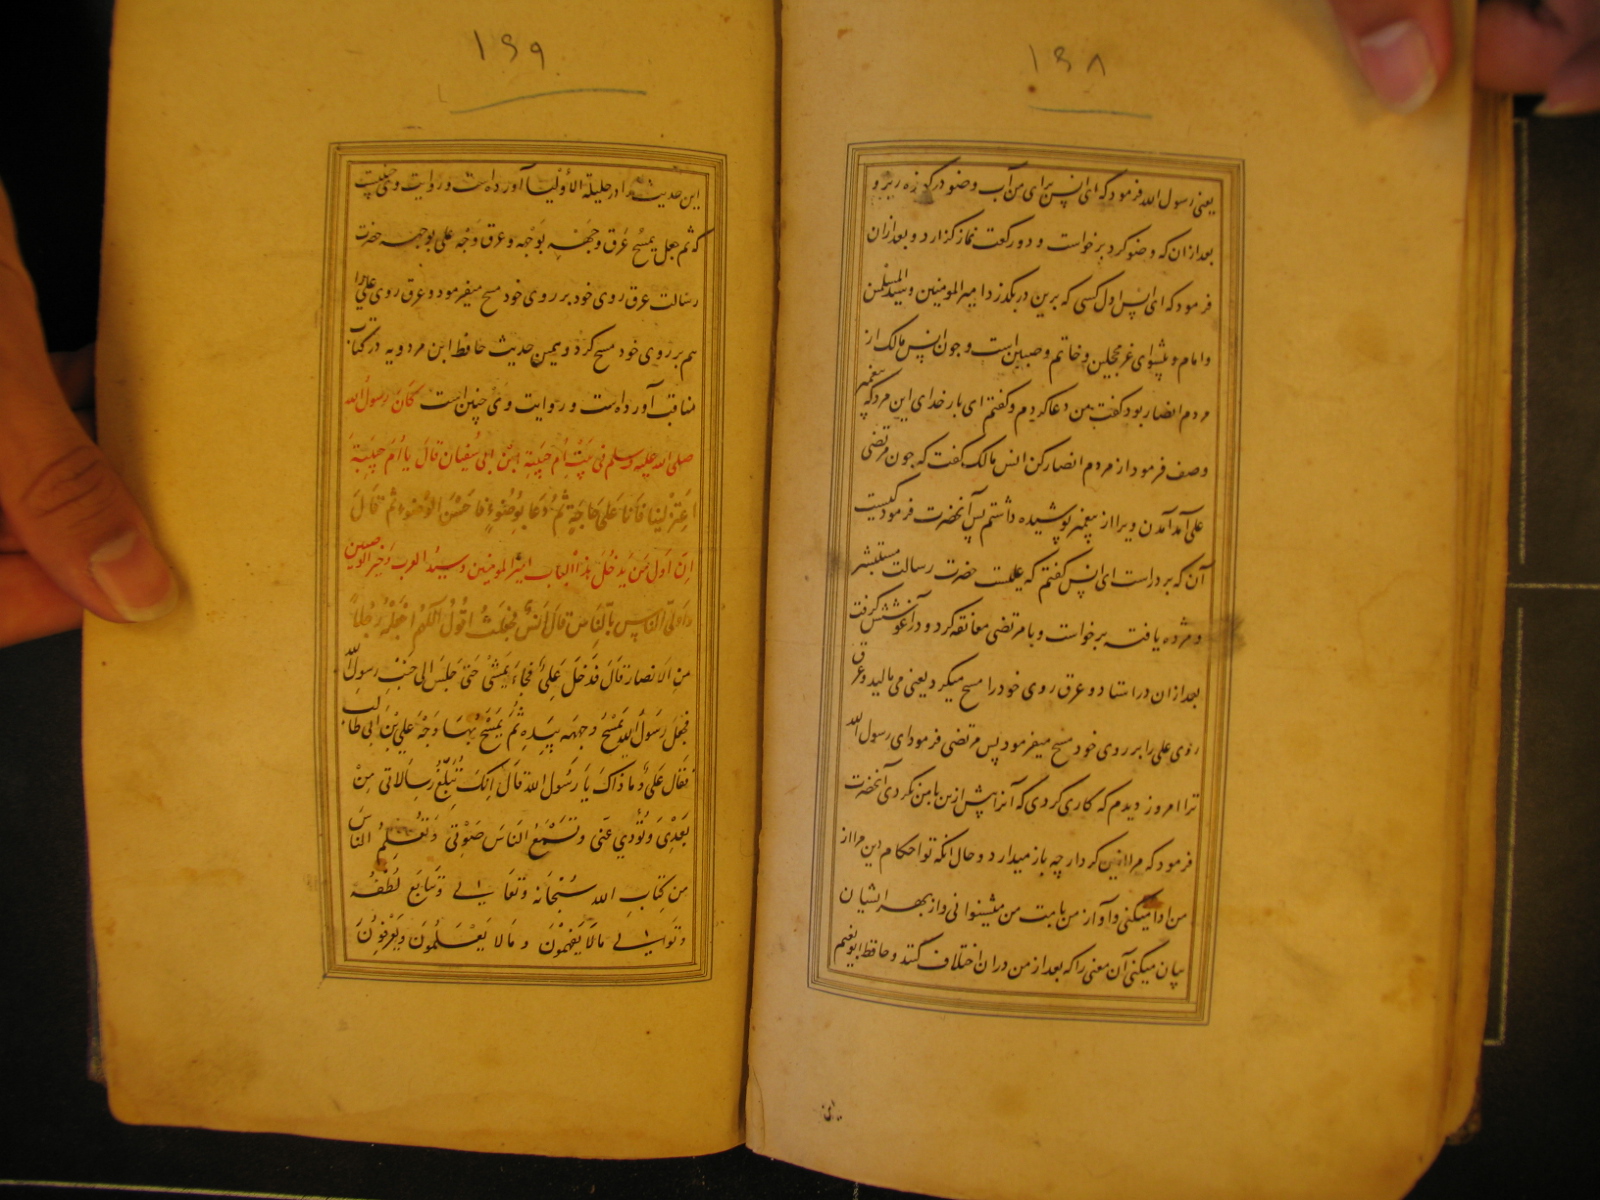 ۱۶۸
یعنی رسول الله فرمود که ای انس برای من آب وضو در کوزه ریز و
بعد از ان که وضو کرد برخواست و دو رکعت نماز گزارد و بعد ازان
فرمود که ای انس اول کسی که برین در بگذرد امیر المومنین و سید المسلمین
و امام و پیشوای غر محجلین و خاتم وصیین است و چون انس مالک از
مردم انصار بود گفت من دعا کردم و گفتم ای بار خدای این مرد که پیغمبر
وصف فرمود از مردم انصار کن انس مالک گفت که چون مرتضی
علی آمد آمدن ویرا از پیغمبر پوشیده داشتم پس آنحضرت فرمود کیست
آن که بر در است ای انس گفتم که علیست حضرت رسالت مستبشر
و مژده یافت برخواست و با مرتضی معانقه کرد و در آغوشش گرفت
بعد ازان در استاد و عرق روی خود را مسح میکرد یعنی می مالید و عرق
روی علی را بر روی خود مسح میفرمود پس مرتضی فرمود ای رسول الله
ترا امروز دیدم که کاری کردی که آنرا پیش ازین با من نکردی آنحضرت
فرمود که مرا ازین کردار چه باز میدارد و حال انکه تو احکام دین مرا از
من ادا میکنی و آواز من بامت من میشنوانی و از بهر ایشان
بیان میکنی آن معنی را که بعد از من دران اختلاف کنند و حافظ ابو نعیم
این
۱۶۹
این حدیث را در حلیة الأولیا آورده است و روایت وی چنینست
که ثم جعل یمسح عرق وجهه بوجهه و عرق وجه علی بوجهه حضرت
رسالت عرق روی خود بر روی خود مسح میفرمود و عرق روی علی را
هم بر روی خود مسح کرد و همین حدیث حافظ ابن مردویه در کتاب
مناقب آورده است و روایت وی چنین است کان رسول الله
صلی الله علیه وسلم فی بیت ام حبیبة ابن ابی سفیان قال یا ام حبیبة
اعتزلینا فانا علی حاجة ثم دعا بوضوء فاحسن الوضوء ثم قال
ان اول من یدخل هذا الباب امیر المومنین و سید العرب و خیر الوصیین
و اولی الناس بالناس قال انس فجعلت اقول اللهم اجعله رجلا
من الانصار قال فدخل علی فجاء یمشی حتی جلس الی جنب رسول الله
فجعل رسول الله یمسح وجهه بیده ثم یمسح بها وجه علی بن ابی طالب
فقال علی و ما ذاک یا رسول الله قال انک تبلغ رسالاتی من
بعدی و تؤدی عنی و تسمع الناس صوتی و تعلم الناس
من کتاب الله سبحانه و تعالی
ما لا یفهمون و ما لا یعلمون و یعرفون